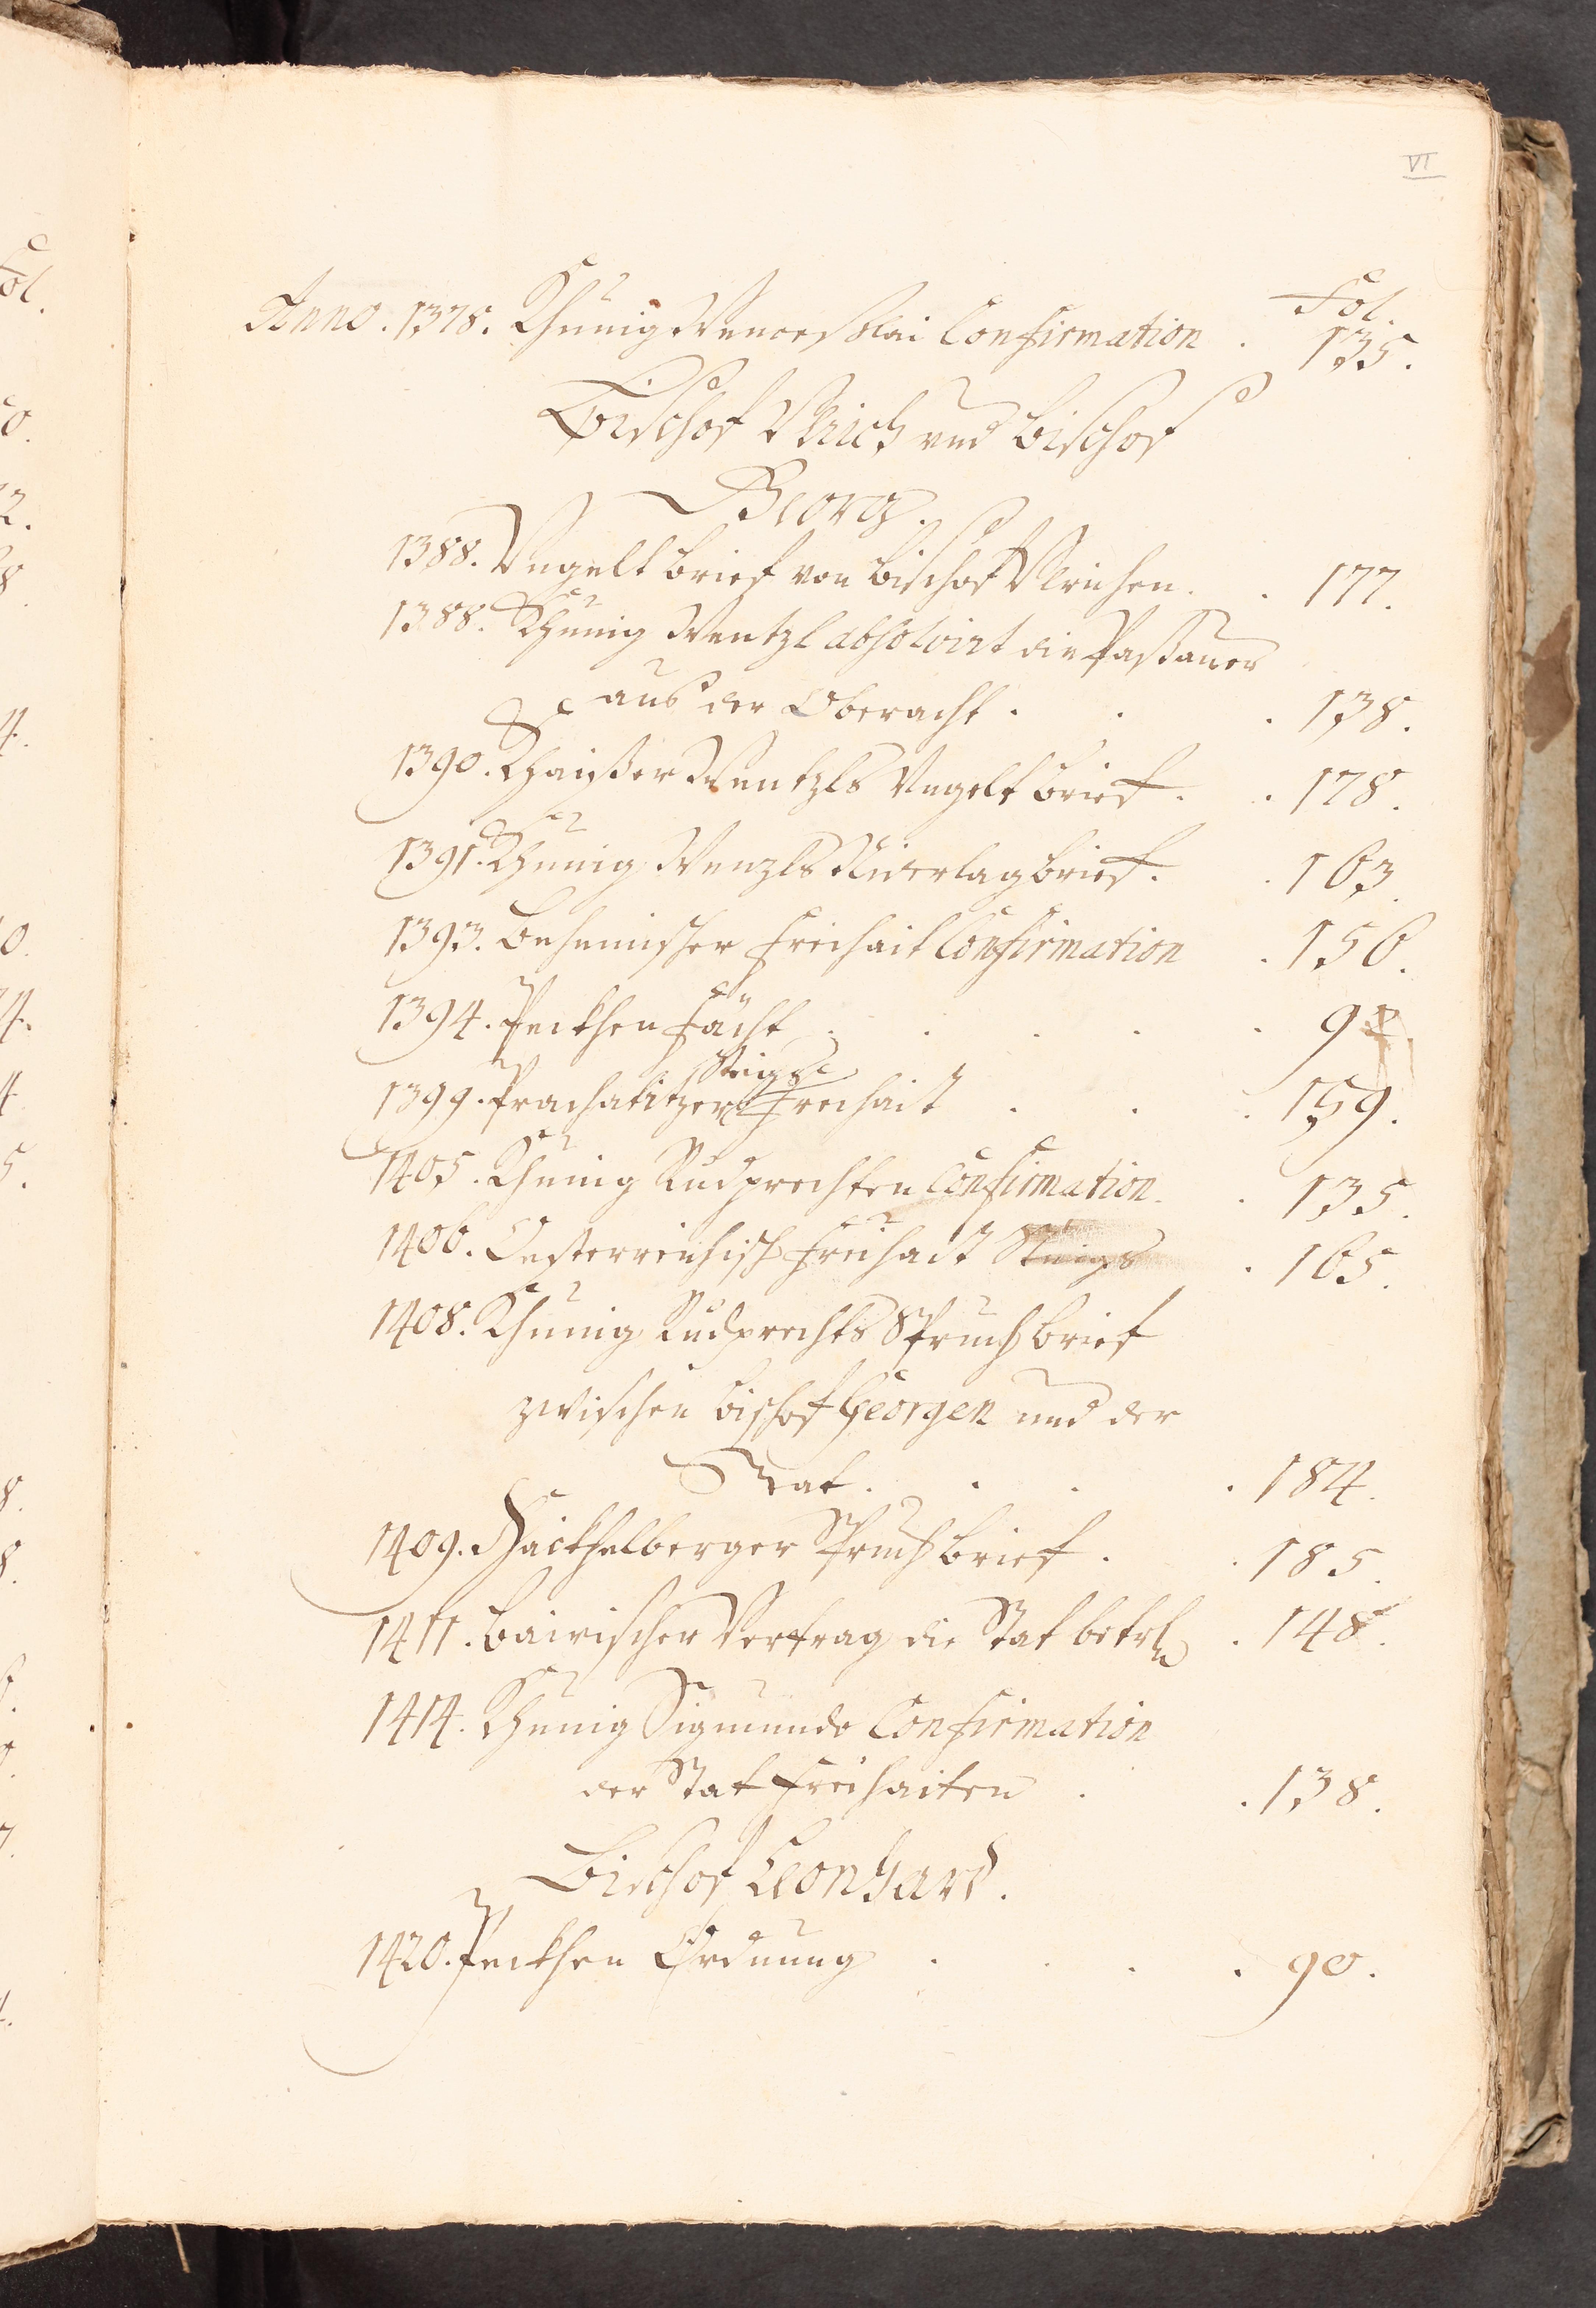 VI
Fol.
Anno. 1378. Khünig Wenceslai Confirmation . 135.
Bischof Ulrich und Bischof
Georg.
1388. Ungelt brief von Bischof Ulrichen . . 177.
1388. Khünig Wentzl absolvirt die Paßauer
aus der Oberacht . . . 138.
1390. Khaißer Wentzls Ungelt brief . . 178.
1391. Khünig Wenzls Niderlag brief . . 163.
1393. Behemischer Freihait Confirmation . 156.
1394. Peckhen fächt . . . . . 92.
Steigs
1399. Prachatitzer Freihait . . . 159.
1405. Khünig Rudprechten Confirmation . . 135.
1406. Oesterreichisch Freihait Steigs . 165.
1408. Khünig Rudprechts Spruchbrief
zwischen Bischof Georgen und der
Stat . . . . 184.
1409. Hackhelberger Spruchbrief . . 185.
1411. Bairischer Vertrag die Stat betrl. . 148.
1414. Khünig Sigmunds Confirmation
der Stat Freihaiten . . 138.
Bischof Leonhard.
1420. Peckhen Ordnung . . . . 90.